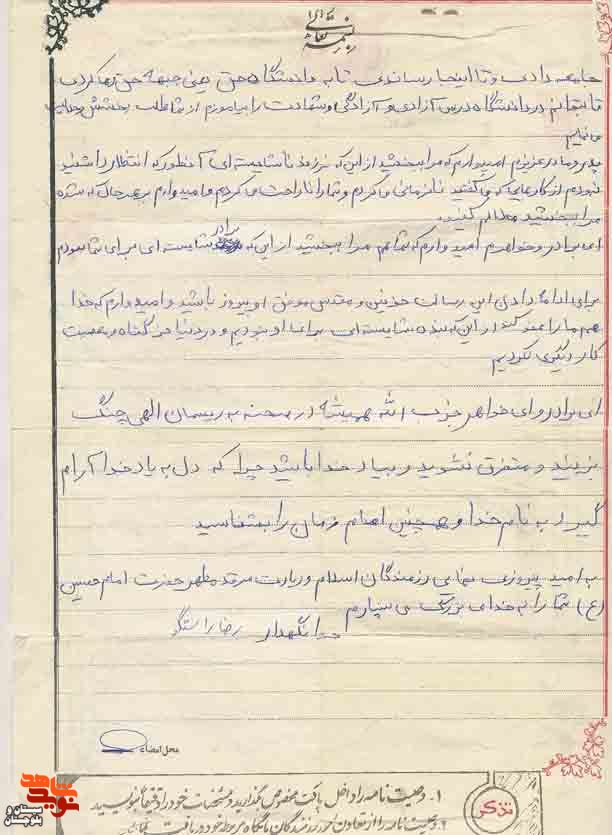 بسمه تعالی
جامعه دادی و تا اینجا رساندی تا به دانشگاه حق یعنی جبهه حق رها کردی
تا بتوانم در دانشگاه درس آزادی و آزادگی و شهادت را بیاموزم از شما طلب بخشش و حلالیت
می نمایم
پدر و مادر عزیزم امیدوارم که مرا ببخشید از این که فرزند شایسته ای آنطور که انتظار داشتید
نبودم از کارهایی که می گفتید نافرمانی می کردم و شما را ناراحت می کردم و امیدوارم به هر حال که شده
مرا ببخشید و حلالم کنید.
ای برادر و خواهرم امیدوارم که شما هم مرا ببخشید از این که برادر شایسته ای برای شما نبودم
برای ادامه دادن این رسالت خونین و مقدس موفق و پیروز باشید و امیدوارم که خدا
هم ما را عفو کند از این که بنده شایسته ای برای او نبودیم و در دنیا جز گناه و معصیت
کار دیگری نکردیم
ای برادر و ای خواهر حزب الله همیشه در صحنه به ریسمان الهی چنگ
بزنید و متفرق نشوید و بیاد خدا باشید چرا که دل به یاد خدا آرام
گیرد به نام خدا و همچنین امام زمان را بشناسید
به امید پیروزی نهایی رزمندگان اسلام و زیارت مرقد مطهر حضرت امام حسین
(ع) شما را به خدای بزرگ می سپارم
خدا نگهدار رضا راستگو
محل امضاء
تذکر
۱- وصیت نامه را داخل پاکت مخصوص بگذارید و مشخصات خود را دقیقاً بنویسید
۲- وصیت نامه را از معاون گروه رزمندگان پایگاه مربوط خود دریافت نمایید
نوید شاهد
سیستان و بلوچستان